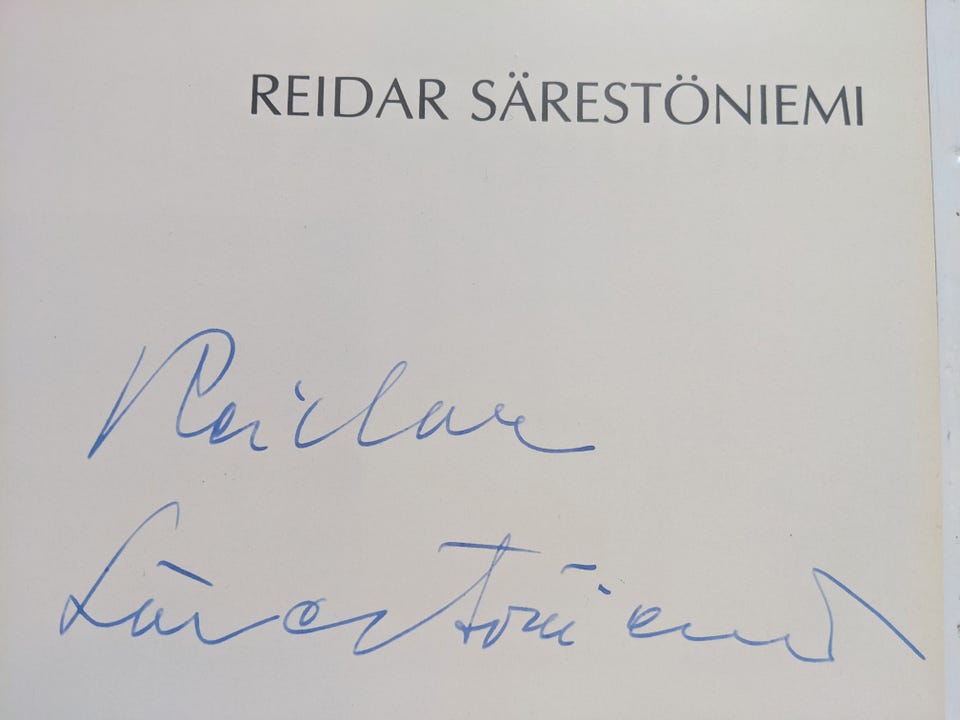 REIDAR SÄRESTÖNIEMI
Reidar
Särestöniemi